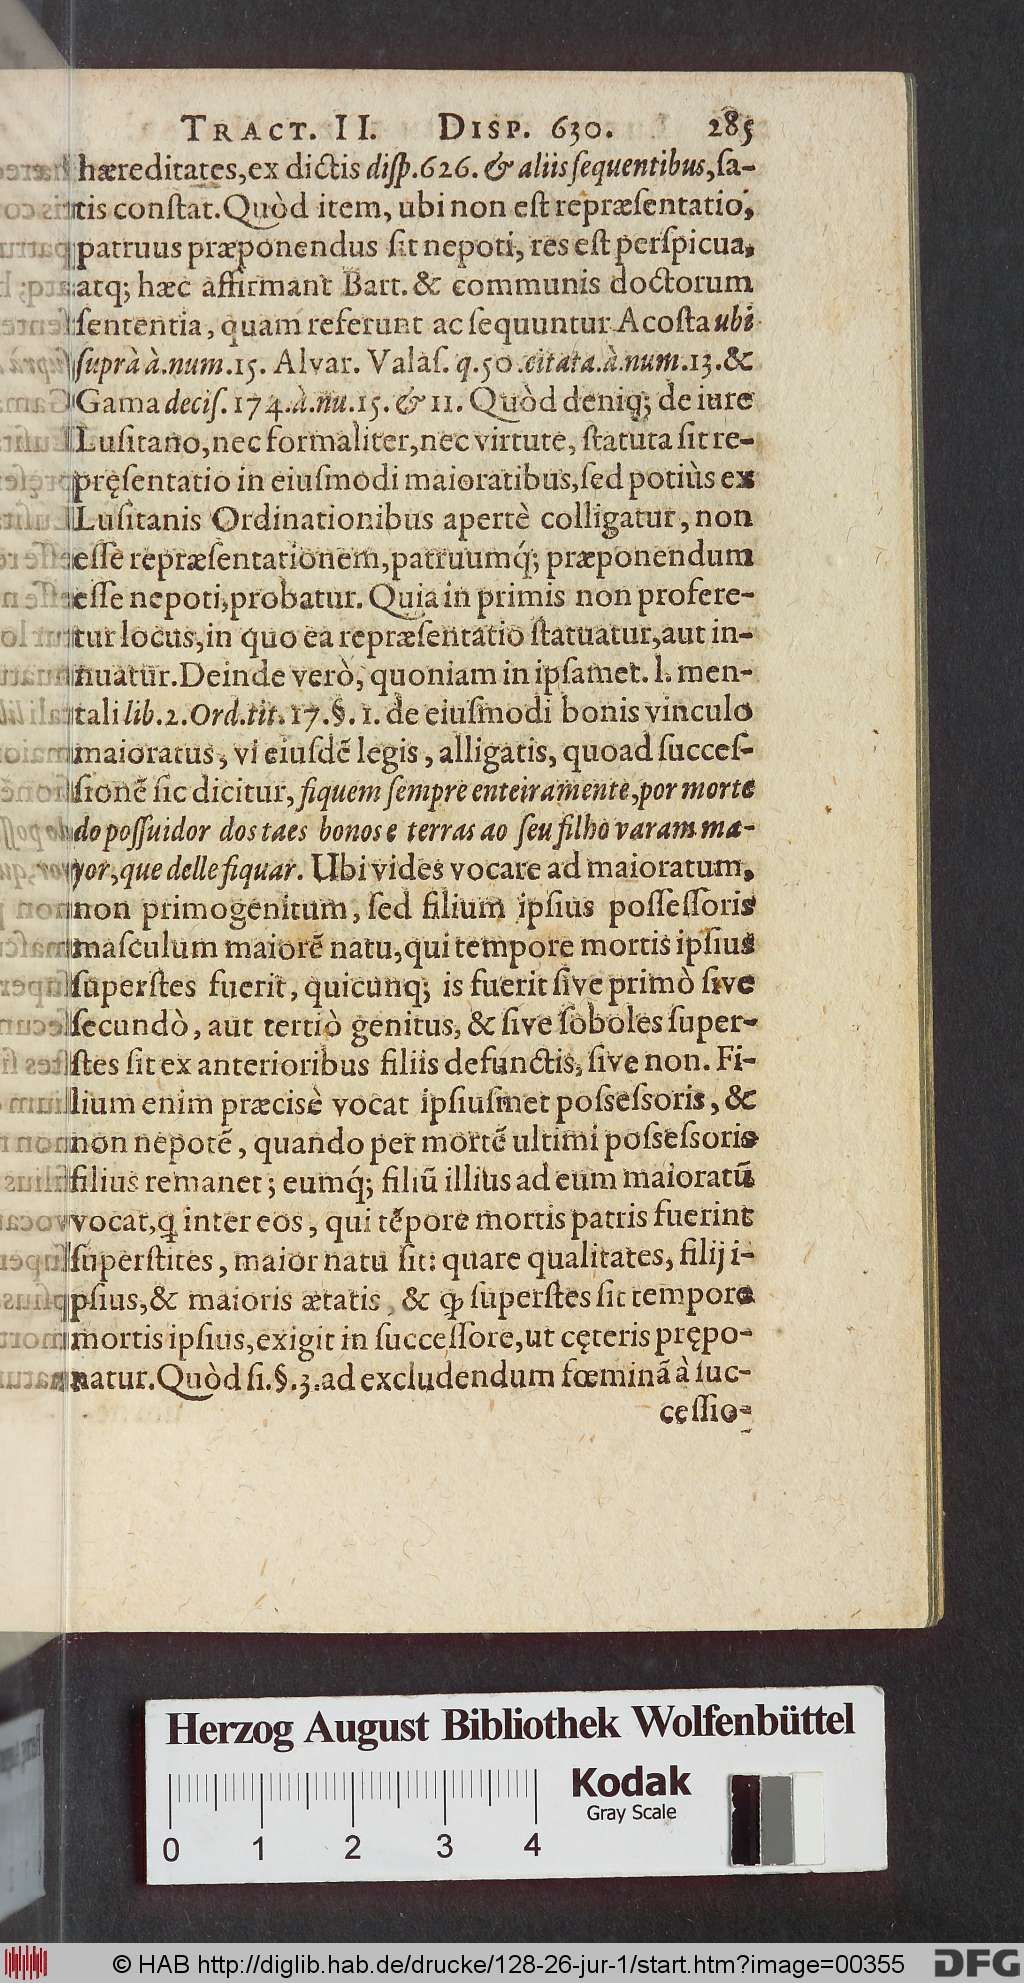 TRACT. II. DISP. 630. 285
hæreditates, ex dictis diſp. 626. & aliis ſequentibus, ſa-
tis conſtat. Quòd item, ubi non eſt repræſentatio,
patruus præponendus ſit nepoti, res eſt perſpicua,
atq; hæc affirmant Bart. & communis doctorum
ſententia, quam referunt ac ſequuntur Acoſta ubi
ſuprà à. num. 15. Alvar. Valaſ. q. 50. citata. à. num. 13. &
Gama deciſ. 174. à. nu. 15. & 11. Quòd deniq; de iure
Luſitano, nec formaliter, nec virtute, ſtatuta ſit re-
pręſentatio in eiuſmodi maioratibus, ſed potiùs ex
Luſitanis Ordinationibus apertè colligatur, non
eſſe repræſentationem, patruumq́; præponendum
eſſe nepoti, probatur. Quia in primis non profere-
tur locus, in quo ea repræſentatio ſtatuatur, aut in-
nuatur. Deinde verò, quoniam in ipſamet. l. men-
tali lib. 2. Ord. tit. 17. §. 1. de eiuſmodi bonis vinculo
maioratus, vi eiuſdē legis, alligatis, quoad ſucceſ-
ſionē ſic dicitur, fiquem ſempre enteiramente, por morte
do poſſuidor dos taes bonos e terras ao ſeu filho varam ma-
yor, que delle fiquar. Ubi vides vocare ad maioratum,
non primogenitum, ſed filium ipſius poſſeſſoris
maſculum maiorē natu, qui tempore mortis ipſius
ſuperſtes fuerit, quicunq; is fuerit ſive primò ſive
ſecundò, aut tertiò genitus, & ſive ſoboles ſuper-
ſtes ſit ex anterioribus filiis defunctis, ſive non. Fi-
lium enim præcisè vocat ipſiuſmet poſseſsoris, &
non nepotē, quando per mortē ultimi poſseſsoris
filius remanet; eumq́; filiū illius ad eum maioratū
vocat, ꝗ inter eos, qui tēpore mortis patris fuerint
ſuperſtites, maior natu ſit: quare qualitates, filij i-
pſius, & maioris ætatis, & ꝙ ſuperſtes ſit tempore
mortis ipſius, exigit in ſucceſſore, ut cęteris prępo-
natur. Quòd ſi. §. 3. ad excludendum fœminā à ſuc-
ceſſio-
Herzog August Bibliothek Wolfenbüttel
Kodak
Gray Scale
0 1 2 3 4
© HAB http://diglib.hab.de/drucke/128-26-jur-1/start.htm?image=00355
DFG